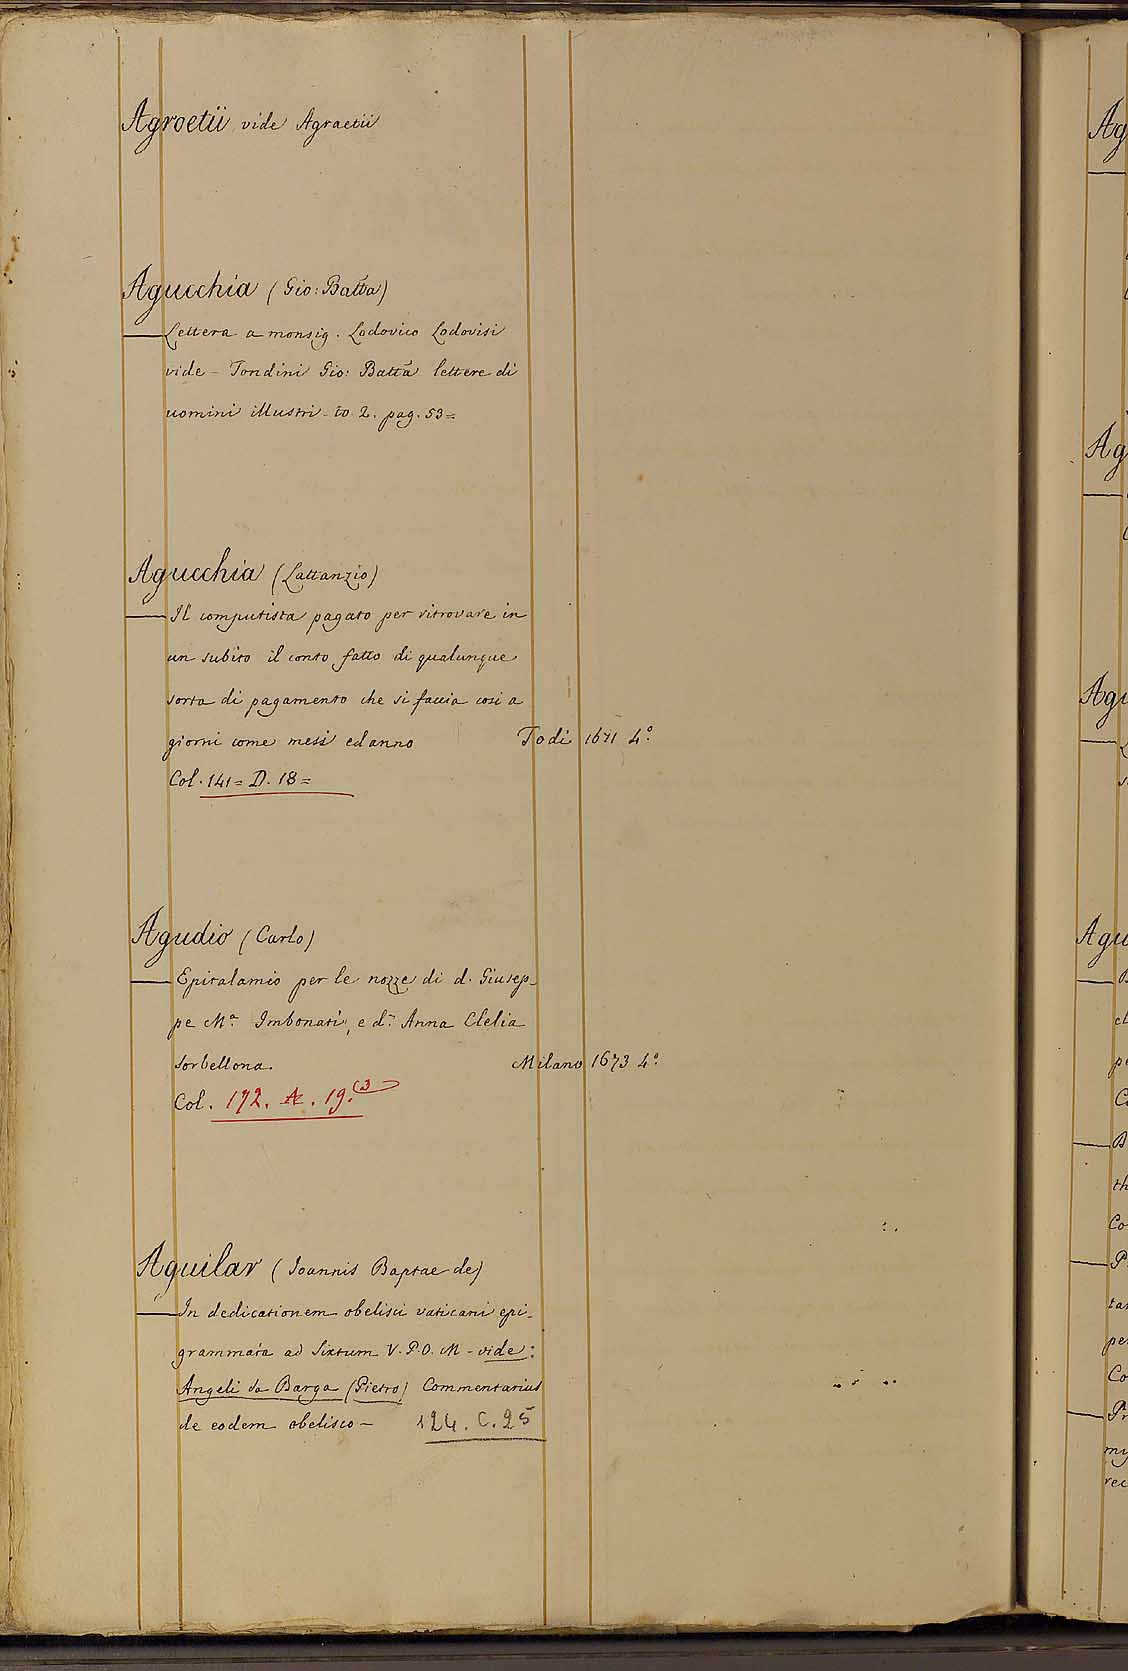 Agroetii vide Agraetii
Agucchia (Gio: Batta)
Lettera a monsig. Lodovico Lodovisi
vide - Tondini Gio: Batta lettere di
uomini illustri - to. 2. pag. 53=
Agucchia (Lattanzio)
Il computista pagato per ritrovare in
un subito il conto fatto di qualunque
sorta di pagamento che si faccia cosi a
giorni come mesi ed anno Todi 1671 4.o
Col. 141= D. 18=
Agudio (Carlo)
Epitalamio per le nozze di d. Giusep-
pe M.a Imbonati, e d. Anna Clelia
Sorbellona. Milano 1673 4.o
Col. 172. A. 19.
Aguilar (Joannis Baptae de)
In dedicationem obelisci vaticani epi-
grammata ad Sixtum V. P. O. M - vide:
Angeli da Barga (Pietro) Commentarius
de eodem obelisco - 124. C. 25
Ag
Ag
Agu
Agu